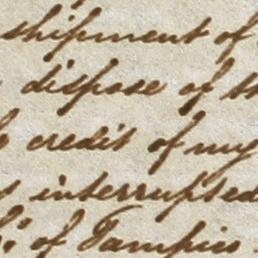 shipment of
dispose of
credit of my
interrupted
of Tampico